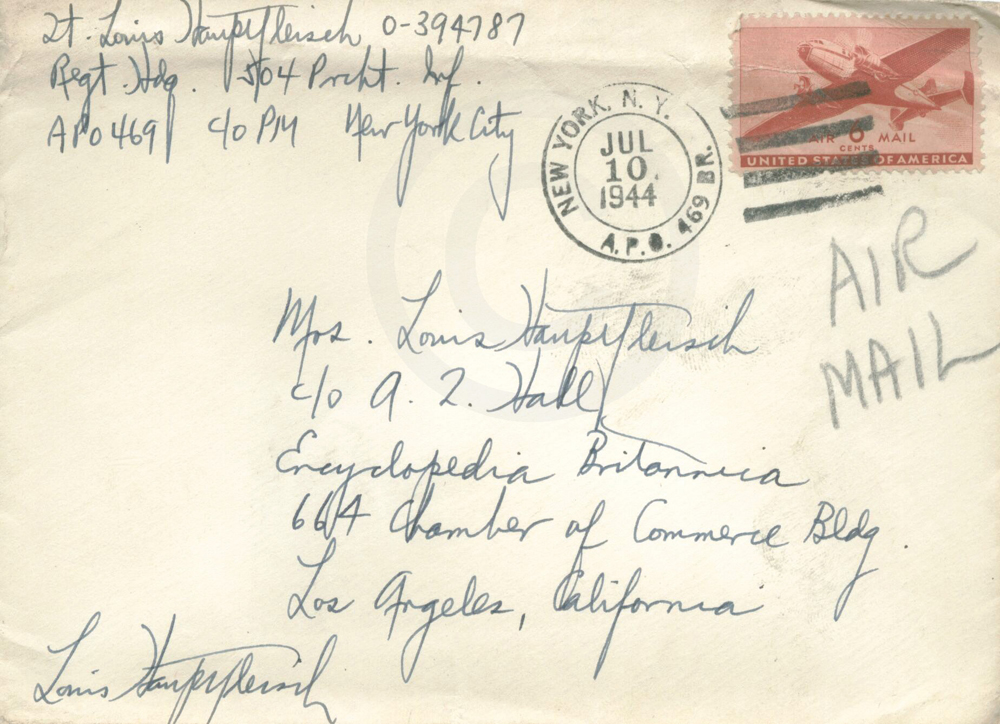 Lt. Louis Hauptfleisch O-394787
Regt. Hdq. 504 Prcht. Inf.
APO 469 c/o PM New York City
NEW YORK, N. Y.
JUL
10
1944
A.P.O. 469 BR.
AIR 6 MAIL
CENTS
UNITED STATES OF AMERICA
AIR
MAIL
Mrs. Louis Hauptfleisch
c/o A. L. Hall
Encyclopedia Britannica
664 Chamber of Commerce Bldg.
Los Angeles, California
Louis Hauptfleisch